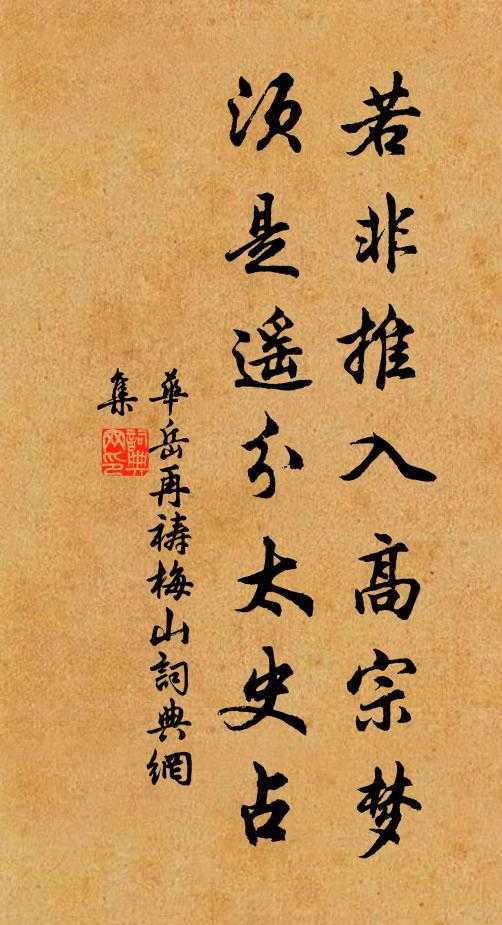 若非推入高宗梦
须是遥分太史占
華岳再禱梅山詞典網
集
詞典
网印